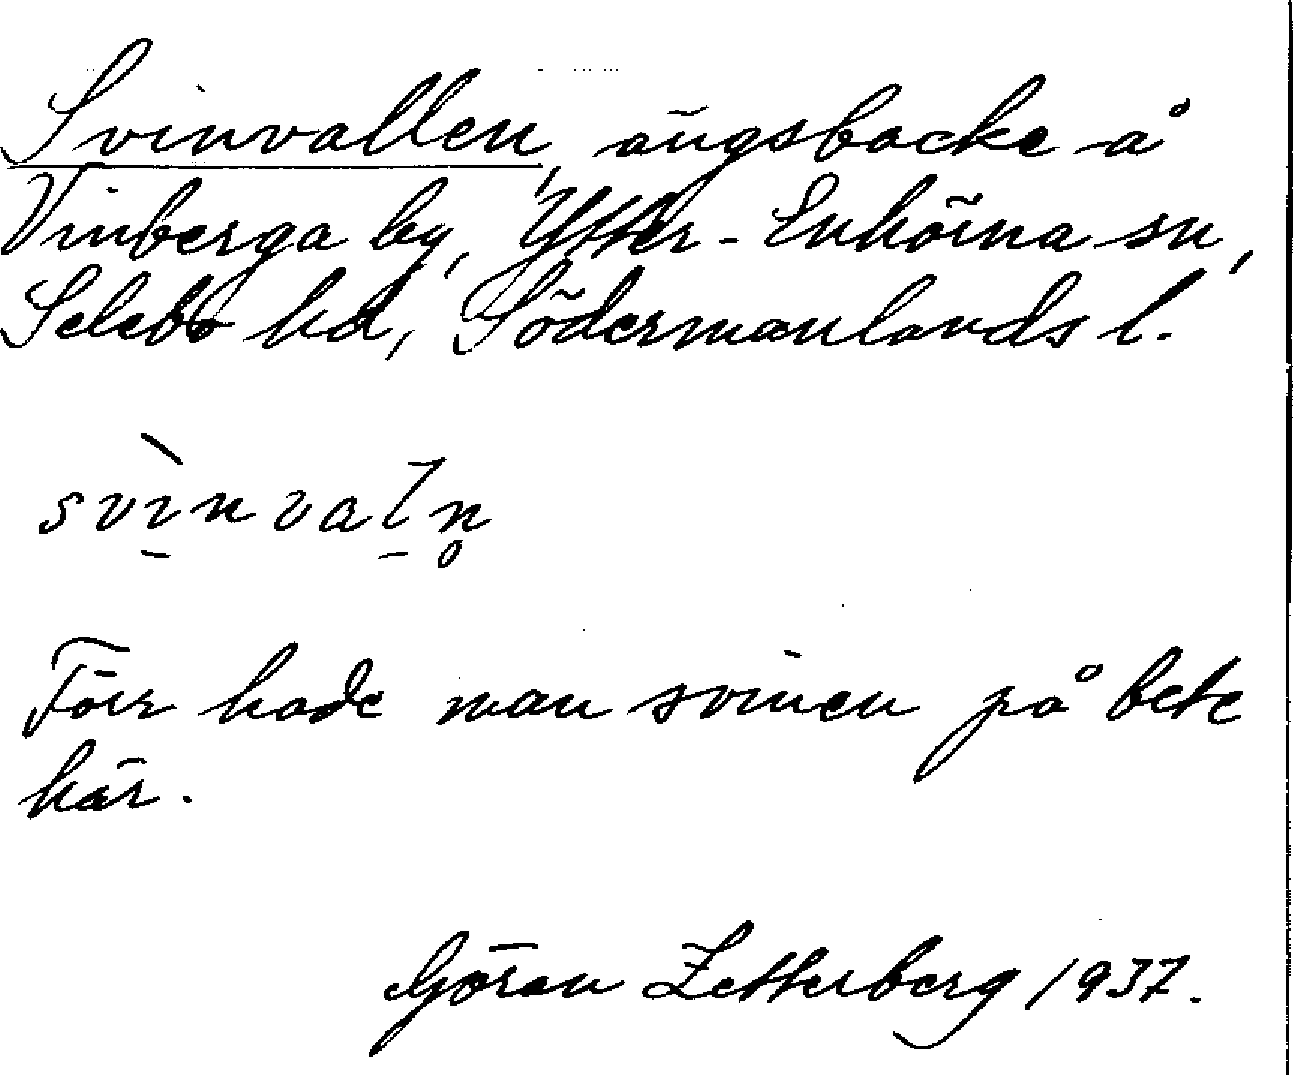 Svinvallen, ängsbacke å
Vinberga by, Ytter-Enhörna sn,
Selebo hd, Södermanlands l.
svı̱̀nvaḻn̥
Förr hade man svinen på bete
här.
Göran Zetterberg 1937.